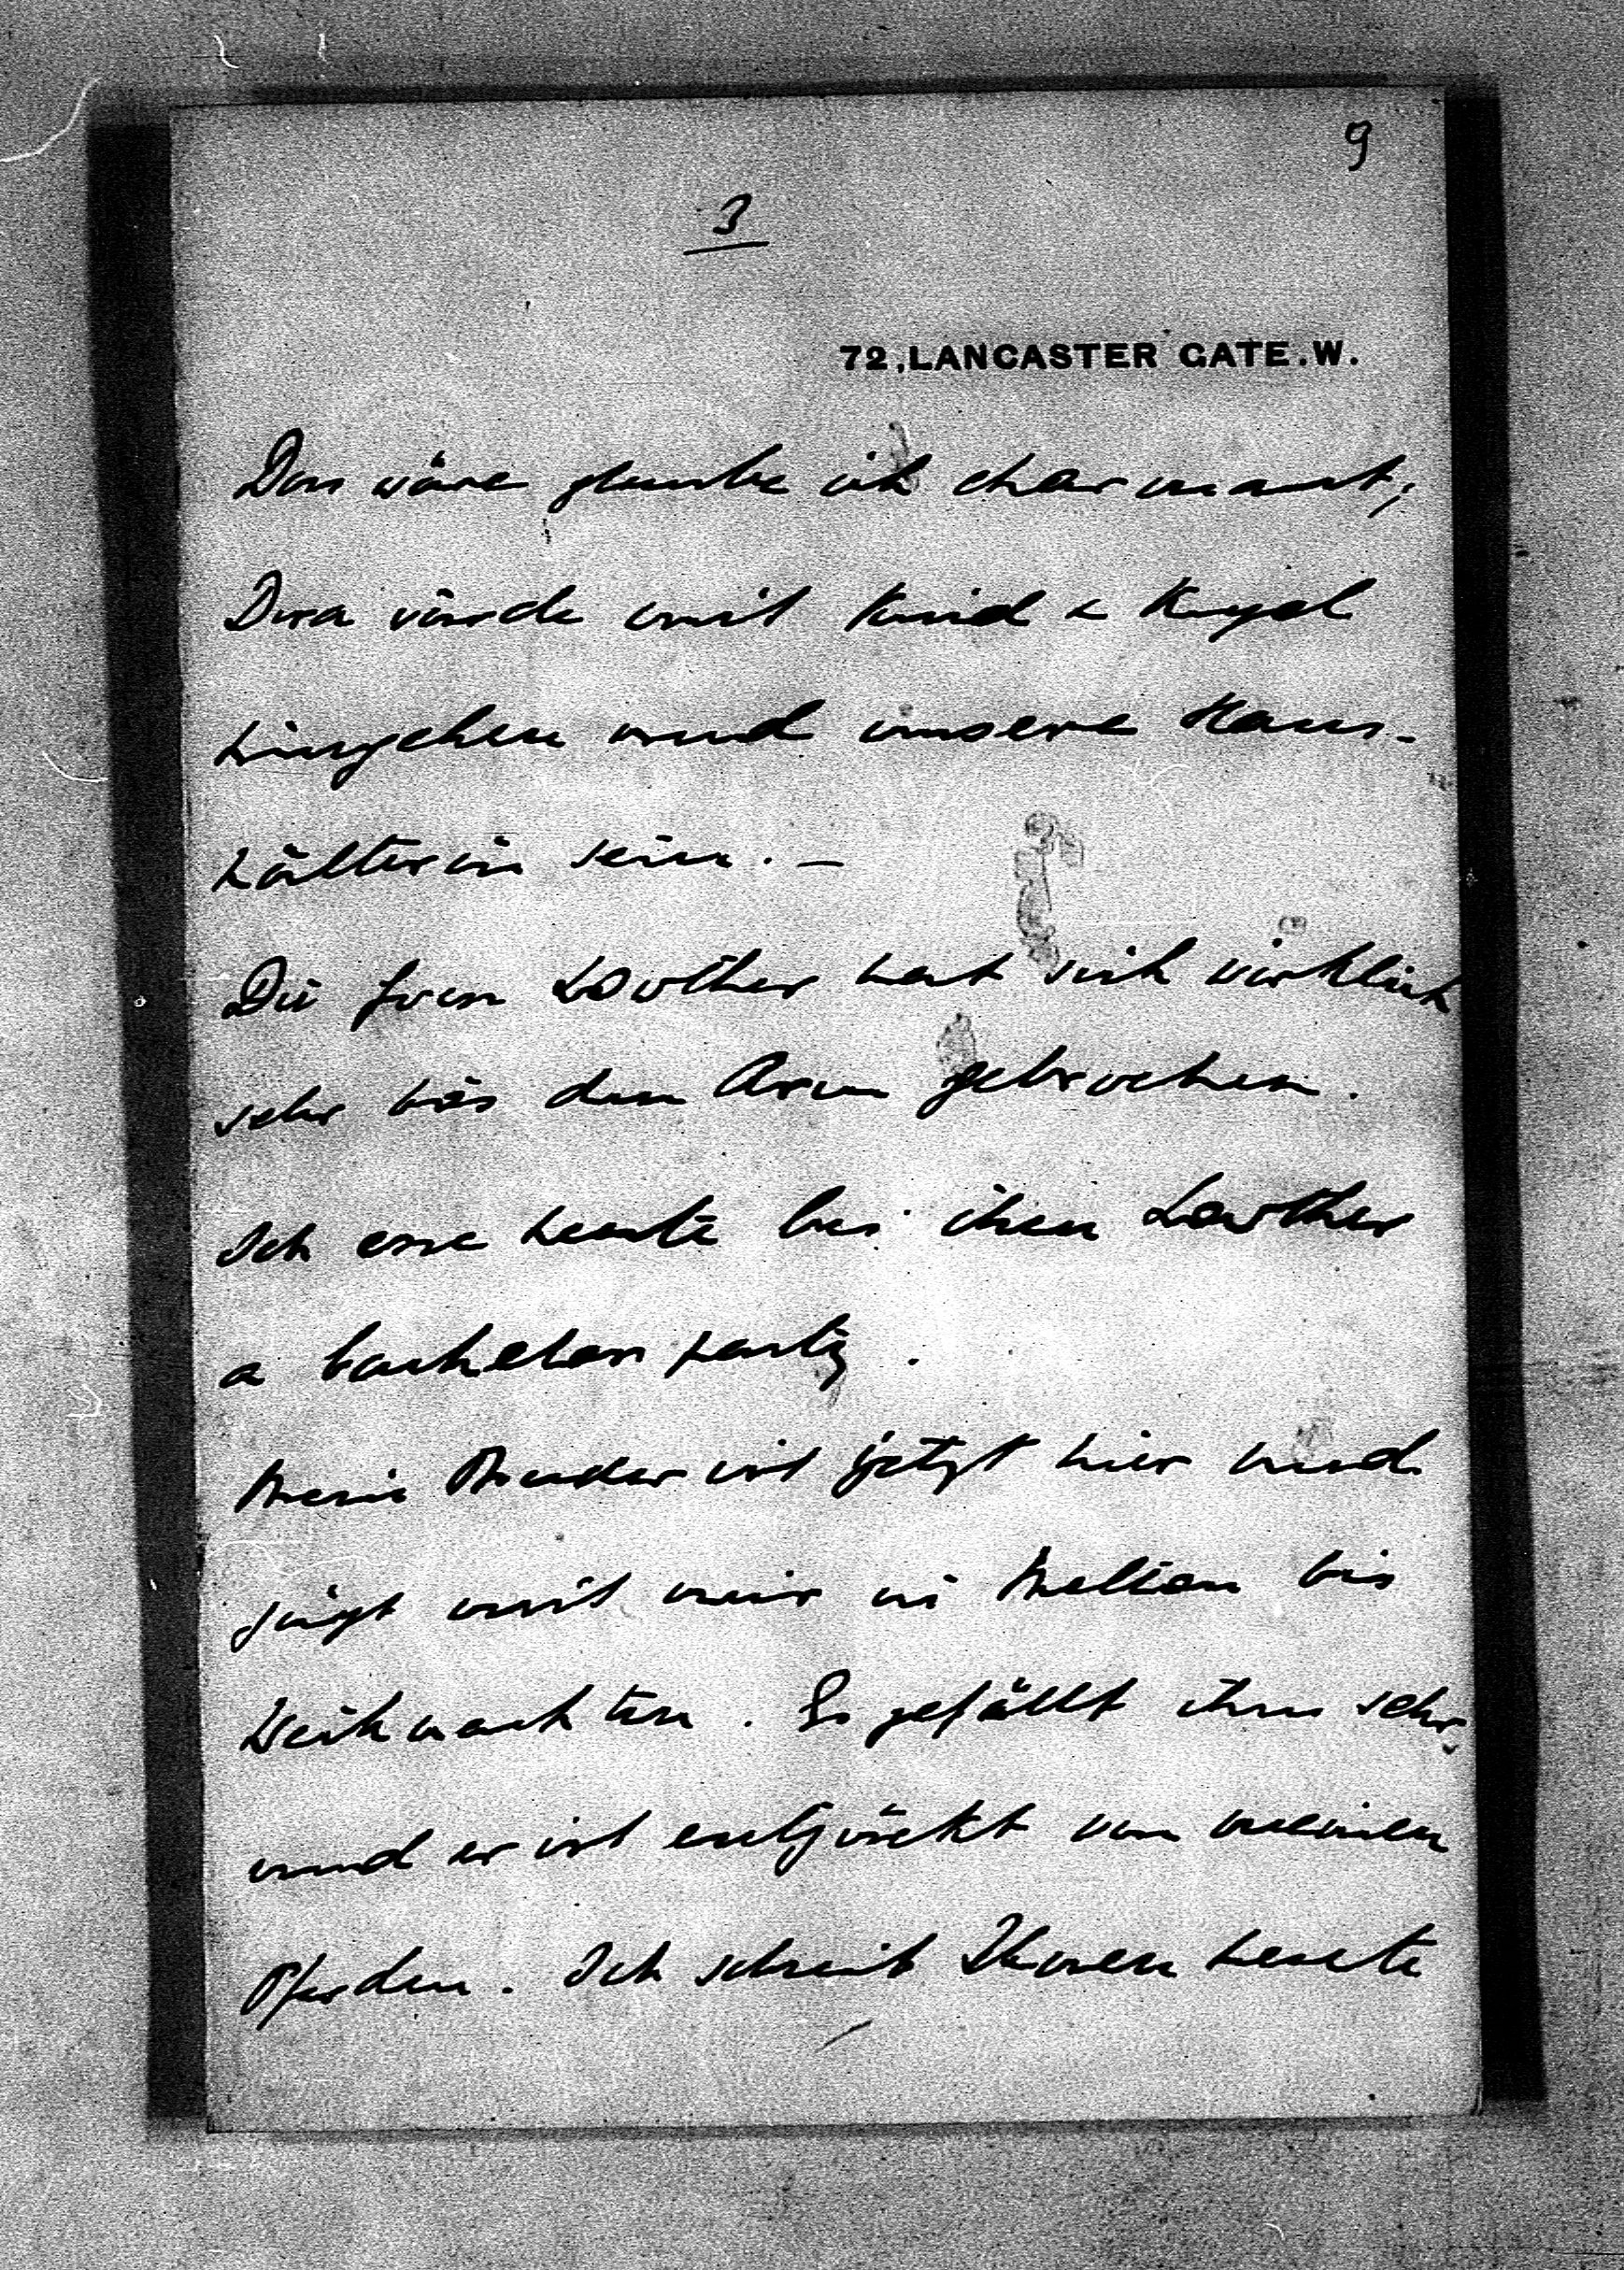 9
3
72, LANCASTER GATE. W.
Das wäre glaube ich charmant;
Dora würde mit Kind & Kegel
hingehen und unsere Haus-
hälterin sein. —
Die Frau Lowther hat sich wirklich
sehr bös den Arm gebrochen.
Ich esse heute bei ihm Lowther
a bachelor party.
Mein Bruder ist jetzt hier und
jagt mit mir in Melton bis
Weihnachten. Es gefällt ihm sehr
und er ist entzückt von meinen
Pferden. Ich schreib Ihnen heute